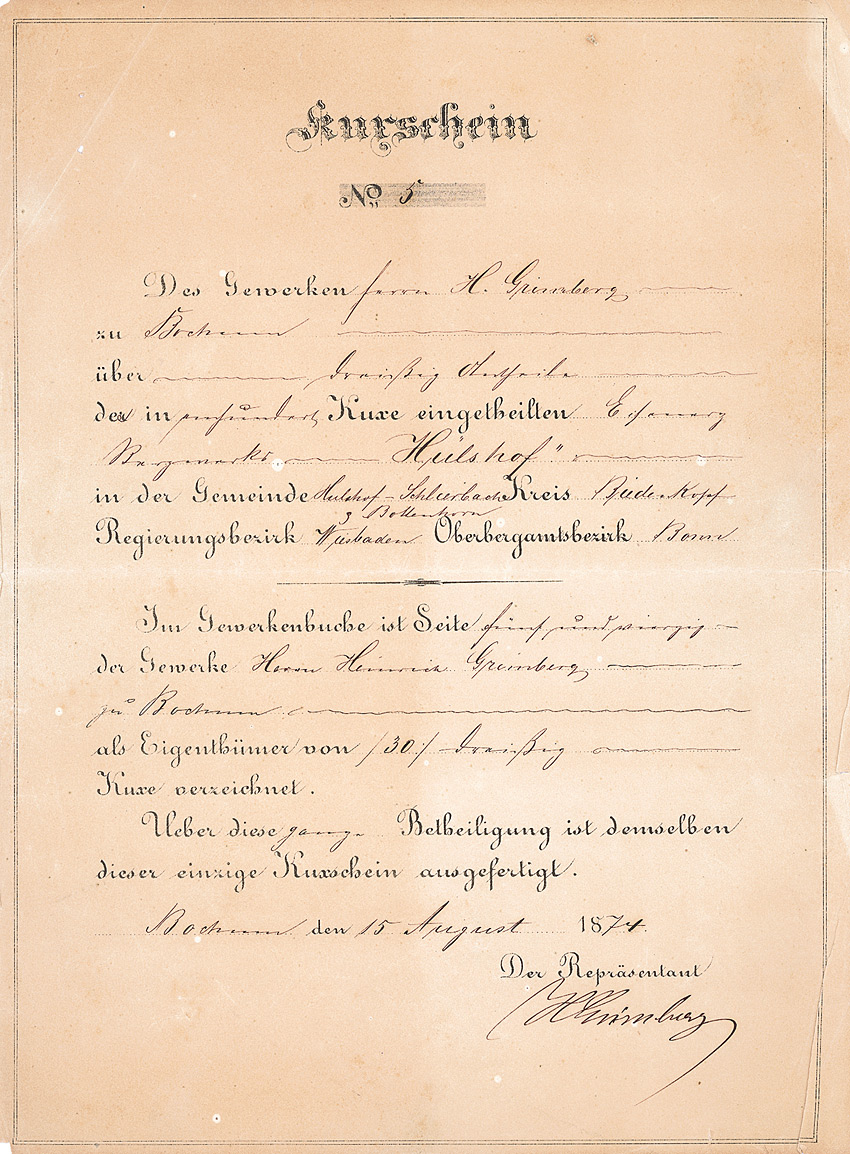 Kuxschein
No. 5
Des Gewerken Herrn H. Grimberg
zu Bochum
über dreißig Antheile
des in einhundert Kuxe eingetheilten Eisenerz
Bergwerks Hülshof"
in der Gemeinde Hülshof-Schlierbach Kreis Biedenkopf
z Bottenhorn
Regierungsbezirk Wiesbaden Oberbergamtsbezirk Bonn
Im Gewerkenbuche ist Seite fünf und vierzig
der Gewerke Herrn Heinrich Grimberg
zu Bochum
als Eigenthümer von /30/ dreißig
Kuxe verzeichnet.
Ueber diese ganze Betheiligung ist demselben
dieser einzige Kuxschein ausgefertigt.
Bochum den 15 August 1874.
Der Repräsentant
HGrimberg